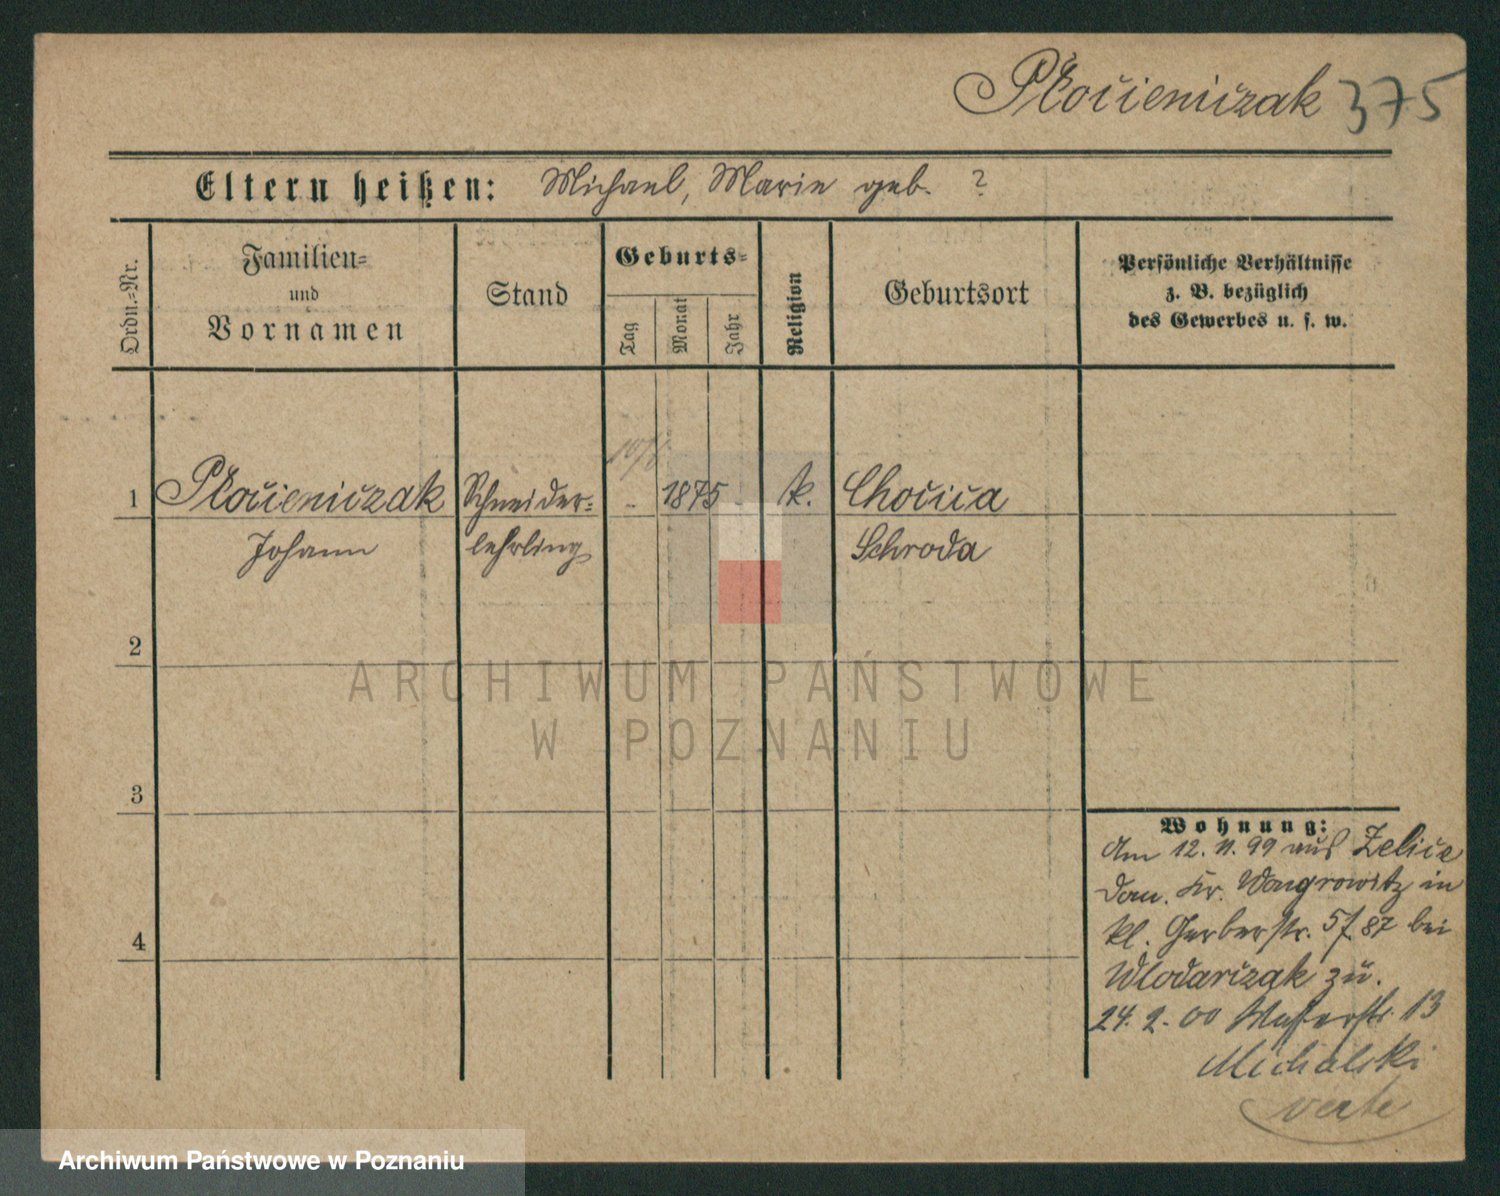 Płocieniczak 375
Eltern heißen: Michael, Marie geb. ?
Ordn.-Nr.
Familien-
und
Vornamen
Stand
Geburts-
Tag
Monat
Jahr
Religion
Geburtsort
Persönliche Verhältnisse
z. B. bezüglich
des Gewerbes u. s. w.
1 Płocieniczak Schneider- - 1875 k. Chocica
Johann lehrling Schroda
2
3
4
Wohnung:
Am 12. 11. 99 aus Zelice
Kr. Wongrowitz in
kl. Gerberstr. 5 f. 87 bei
Wlodarczak zu.
24. 2. 00 Wasserstr. 13
Michalski
verte
ARCHIWUM PAŃSTWOWE
W POZNANIU
Archiwum Państwowe w Poznaniu